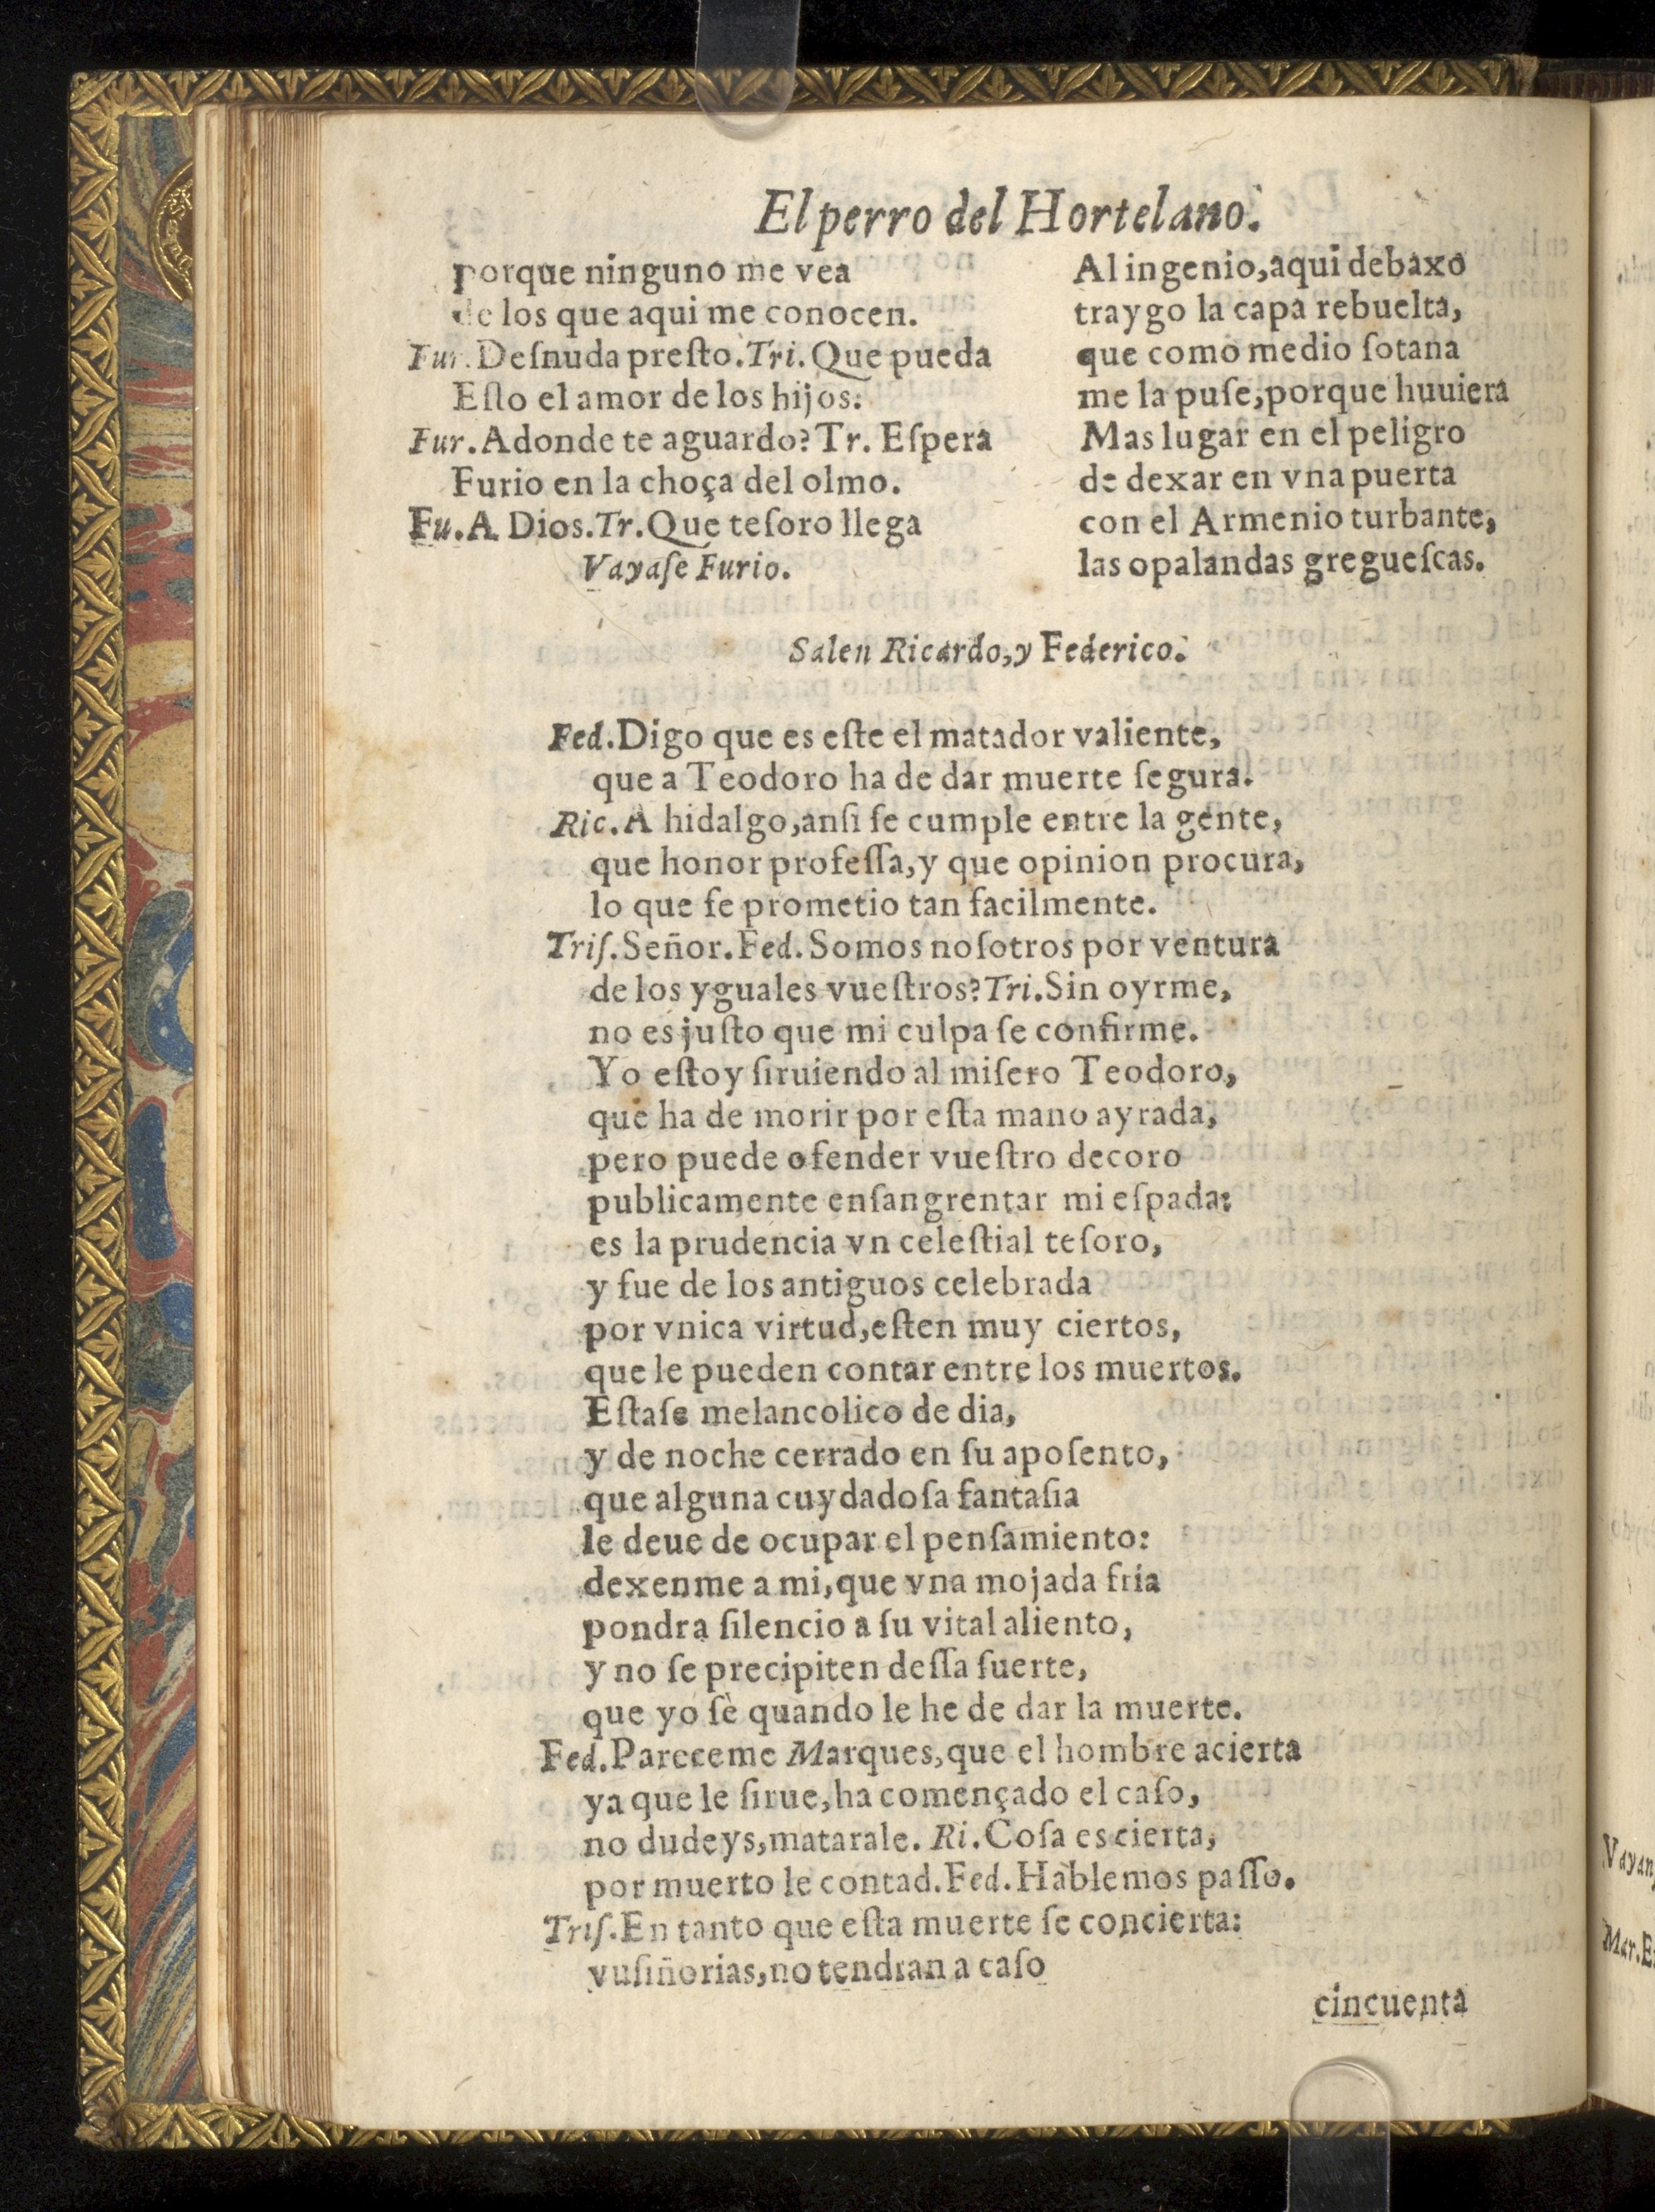 El perro del Hortelano.
porque ninguno me vea
de los que aqui me conocen.
Fur. Deſnuda preſto. Tri. Que pueda
Eſto el amor de los hijos.
Fur. Adonde te aguardo? Tr. Eſpera
Furio en la choça del olmo.
Fu. A Dios. Tr. Que teſoro llega
Vayaſe Furio.
Al ingenio, aqui debaxo
traygo la capa rebuelta,
que como medio ſotana
me la puſe, porque huuiera
Mas lugar en el peligro
de dexar en vna puerta
con el Armenio turbante,
las opalandas gregueſcas.
Salen Ricardo, y Federico.
Fed. Digo que es eſte el matador valiente,
que a Teodoro ha de dar muerte ſegura.
Ric. A hidalgo, anſi ſe cumple entre la gente,
que honor profeſſa, y que opinion procura,
lo que ſe prometio tan facilmente.
Triſ. Señor. Fed. Somos noſotros por ventura
de los yguales vueſtros? Tri. Sin oyrme,
no es juſto que mi culpa ſe confirme.
Yo eſtoy ſiruiendo al miſero Teodoro,
que ha de morir por eſta mano ayrada,
pero puede ofender vueſtro decoro
publicamente enſangrentar mi eſpada:
es la prudencia vn celeſtial teſoro,
y fue de los antiguos celebrada
por vnica virtud, eſten muy ciertos,
que le pueden contar entre los muertos.
Eſtaſe melancolico de dia,
y de noche cerrado en ſu apoſento,
que alguna cuydadoſa fantaſia
le deue de ocupar el penſamiento:
dexenme a mi, que vna mojada fria
pondra ſilencio a ſu vital aliento,
y no ſe precipiten deſſa ſuerte,
que yo ſè quando le he de dar la muerte.
Fed. Pareceme Marques, que el hombre acierta
ya que le ſirue, ha començado el caſo,
no dudeys, matarale. Ri. Coſa es cierta,
por muerto le contad. Fed. Hablemos paſſo.
Triſ. En tanto que eſta muerte ſe concierta:
vuſiñorias, no tendran a caſo
cincuenta